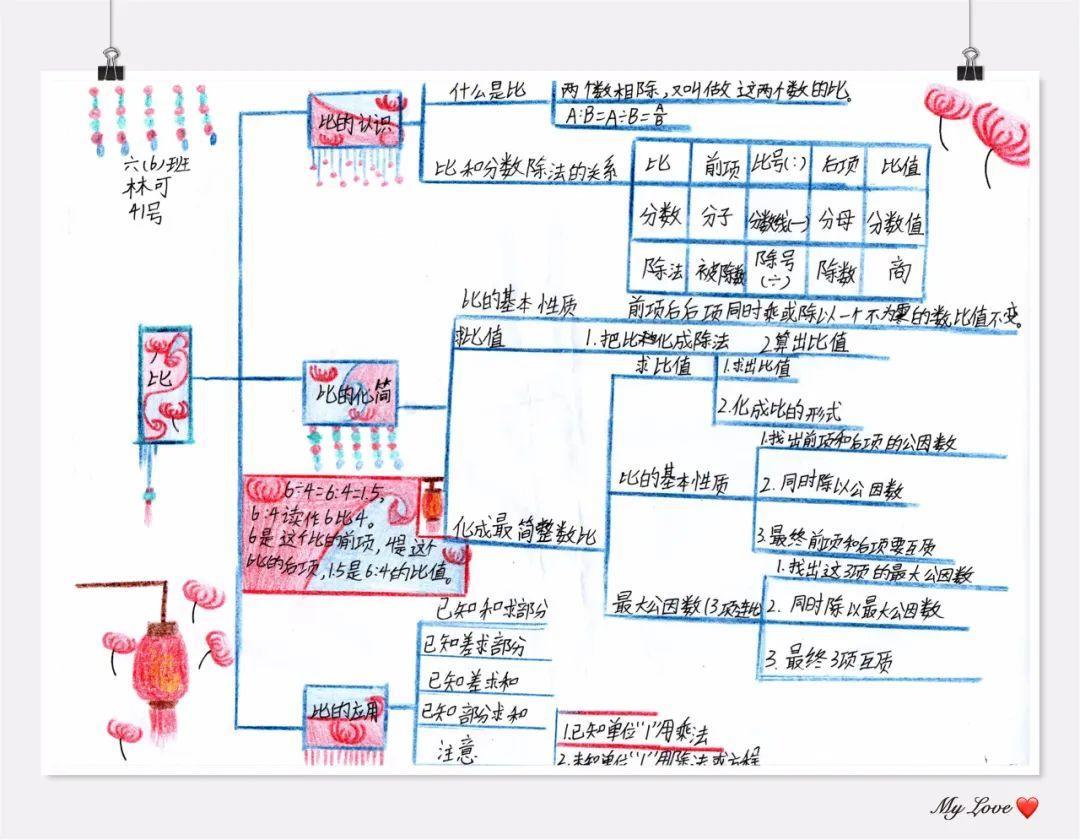 六(6)班
林可
41号
比
比的认识
什么是比
两个数相除,又叫做这两个数的比。
A:B=A÷B=A/B
比和分数除法的关系
比 前项 比号(:) 后项 比值
分数 分子 分数线(一) 分母 分数值
除法 被除数 除号(÷) 除数 商
比的化简
比的基本性质
前项后后项同时乘或除以一个不为零的数比值不变。
求比值
1.把比 化成除法 2算出比值
化成最简整数比
求比值
1.求出比值
2.化成比的形式
比的基本性质
1.找出前项和后项的公因数
2.同时除以公因数
3.最终前项和后项要互质
最大公因数(3项连比
1.找出这3项的最大公因数
2.同时除以最大公因数
3.最终3项互质
6÷4=6:4=1.5,
6:4读作6比4。
6是这个比的前项,4是这个
比的后项,1.5是6:4的比值。
比的应用
已知和求部分
已知差求部分
已知差求和
已知部分求和
注意
1.已知单位“1”用乘法
2.未知单位“1”用除法或方程
My Love